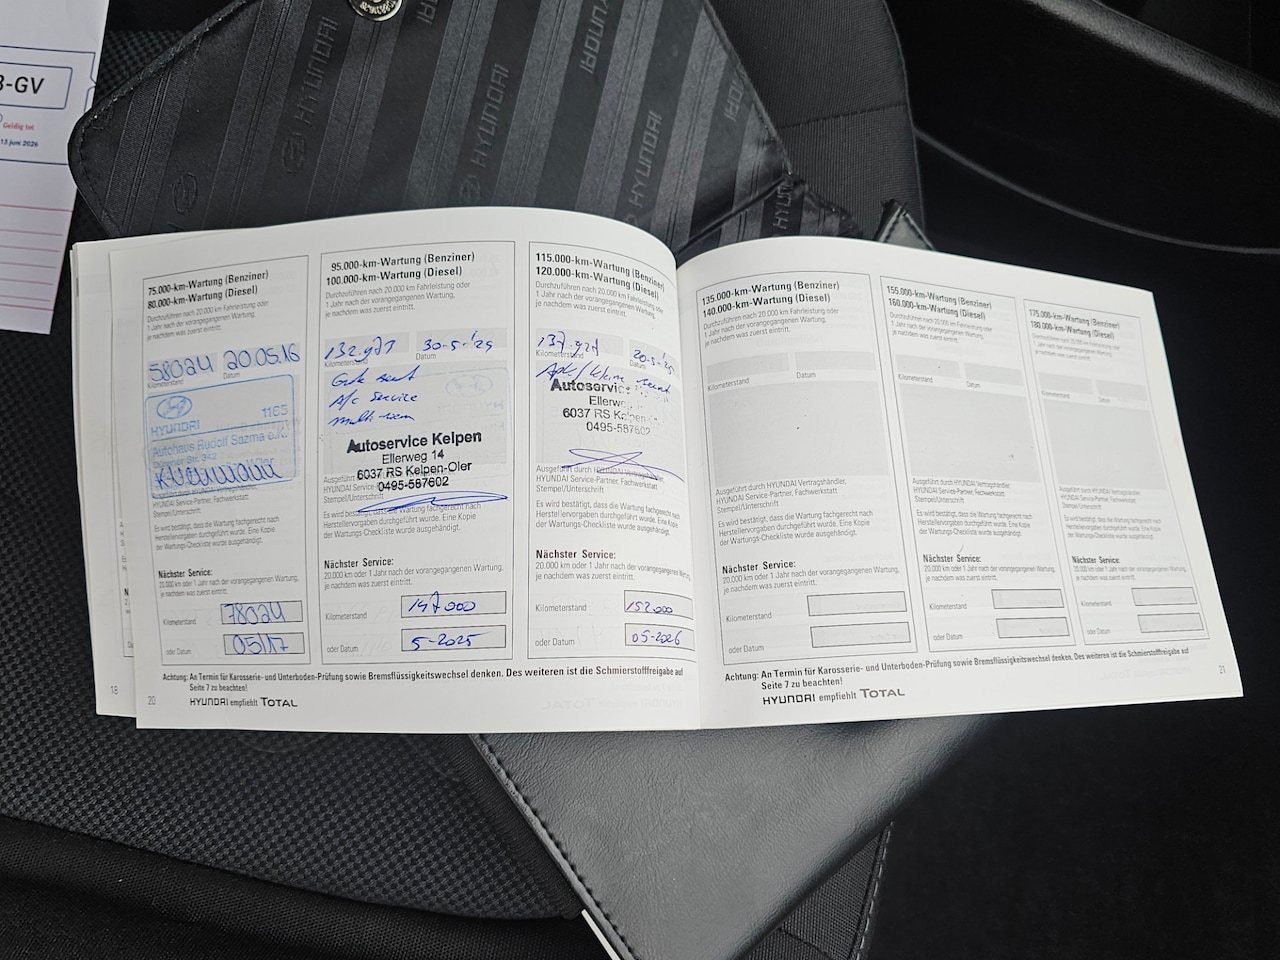 3-GV
Geldig tot
13 juni 2026
HYUNDAI
HYUNDAI
HYUNDAI
HYUNDAI
75.000-km-Wartung (Benziner)
80.000-km-Wartung (Diesel)
Durchzuführen nach 20.000 km Fahrleistung oder
1 Jahr nach der vorangegangenen Wartung,
je nachdem was zuerst eintritt.
58024 20.05.16
Kilometerstand Datum
HYUNDAI 1165
Autohaus Rudolf Sazma e.K.
Str. 342
HYUNDAI Service-Partner, Fachwerkstatt
Stempel/Unterschrift
Es wird bestätigt, dass die Wartung fachgerecht nach
Herstellervorgaben durchgeführt wurde. Eine Kopie
der Wartungs-Checkliste wurde ausgehändigt.
Nächster Service:
20.000 km oder 1 Jahr nach der vorangegangenen Wartung,
je nachdem was zuerst eintritt.
Kilometerstand 78024
oder Datum 05/17
95.000-km-Wartung (Benziner)
100.000-km-Wartung (Diesel)
Durchzuführen nach 20.000 km Fahrleistung oder
1 Jahr nach der vorangegangenen Wartung,
je nachdem was zuerst eintritt.
132.971 30-5-'24
Kilometerstand Datum
A/c Service
Autoservice Kelpen
Ellerweg 14
6037 RS Kelpen-Oler
0495-587602
Stempel/Unterschrift
Es wird bestätigt, dass die Wartung fachgerecht nach
Herstellervorgaben durchgeführt wurde. Eine Kopie
der Wartungs-Checkliste wurde ausgehändigt.
Nächster Service:
20.000 km oder 1 Jahr nach der vorangegangenen Wartung,
je nachdem was zuerst eintritt.
Kilometerstand 147000
oder Datum 5-2025
115.000-km-Wartung (Benziner)
120.000-km-Wartung (Diesel)
Durchzuführen nach 20.000 km Fahrleistung oder
1 Jahr nach der vorangegangenen Wartung,
je nachdem was zuerst eintritt.
Kilometerstand Datum
Autoservic
Ellerwe
6037 RS Kelpen
0495-587602
Ausgeführt durch HYUNDAI Vertragshändler,
HYUNDAI Service-Partner, Fachwerkstatt
Stempel/Unterschrift
Es wird bestätigt, dass die Wartung fachgerecht nach
Herstellervorgaben durchgeführt wurde. Eine Kopie
der Wartungs-Checkliste wurde ausgehändigt.
Nächster Service:
20.000 km oder 1 Jahr nach der vorangegangenen Wartung,
je nachdem was zuerst eintritt.
Kilometerstand 152000
oder Datum 05-2026
Achtung: An Termin für Karosserie- und Unterboden-Prüfung sowie Bremsflüssigkeitswechsel denken. Des weiteren ist die Schmierstofffreigabe auf
Seite 7 zu beachten!
18
20
HYUNDAI empfiehlt TOTAL
135.000-km-Wartung (Benziner)
140.000-km-Wartung (Diesel)
Durchzuführen nach 20.000 km Fahrleistung oder
1 Jahr nach der vorangegangenen Wartung,
je nachdem was zuerst eintritt.
Kilometerstand Datum
Ausgeführt durch HYUNDAI Vertragshändler,
HYUNDAI Service-Partner, Fachwerkstatt
Stempel/Unterschrift
Es wird bestätigt, dass die Wartung fachgerecht nach
Herstellervorgaben durchgeführt wurde. Eine Kopie
der Wartungs-Checkliste wurde ausgehändigt.
Nächster Service:
20.000 km oder 1 Jahr nach der vorangegangenen Wartung,
je nachdem was zuerst eintritt.
Kilometerstand
oder Datum
155.000-km-Wartung (Benziner)
160.000-km-Wartung (Diesel)
Durchzuführen nach 20.000 km Fahrleistung oder
1 Jahr nach der vorangegangenen Wartung,
je nachdem was zuerst eintritt.
Kilometerstand Datum
Ausgeführt durch HYUNDAI Vertragshändler,
HYUNDAI Service-Partner, Fachwerkstatt
Stempel/Unterschrift
Es wird bestätigt, dass die Wartung fachgerecht nach
Herstellervorgaben durchgeführt wurde. Eine Kopie
der Wartungs-Checkliste wurde ausgehändigt.
Nächster Service:
20.000 km oder 1 Jahr nach der vorangegangenen Wartung,
je nachdem was zuerst eintritt.
Kilometerstand
oder Datum
175.000-km-Wartung (Benziner)
180.000-km-Wartung (Diesel)
Durchzuführen nach 20.000 km Fahrleistung oder
1 Jahr nach der vorangegangenen Wartung,
je nachdem was zuerst eintritt.
Kilometerstand Datum
Ausgeführt durch HYUNDAI Vertragshändler,
HYUNDAI Service-Partner, Fachwerkstatt
Stempel/Unterschrift
Es wird bestätigt, dass die Wartung fachgerecht nach
Herstellervorgaben durchgeführt wurde. Eine Kopie
der Wartungs-Checkliste wurde ausgehändigt.
Nächster Service:
20.000 km oder 1 Jahr nach der vorangegangenen Wartung,
je nachdem was zuerst eintritt.
Kilometerstand
oder Datum
Achtung: An Termin für Karosserie- und Unterboden-Prüfung sowie Bremsflüssigkeitswechsel denken. Des weiteren ist die Schmierstofffreigabe auf
Seite 7 zu beachten!
HYUNDAI empfiehlt TOTAL
21